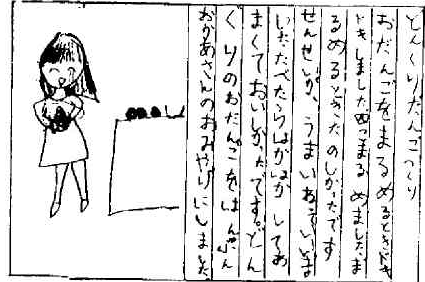 どんぐりだんごつくり
おだんごをまるめるときどき
どきしました四つまるめましたま
るめるときたのしかったです
せんせいが、うまいねていいま
したたべたらほかほかしてあ
まくておいしかったです。どん
ぐりのおだんごをはんぶん
おかあさんのおみやげにしました。